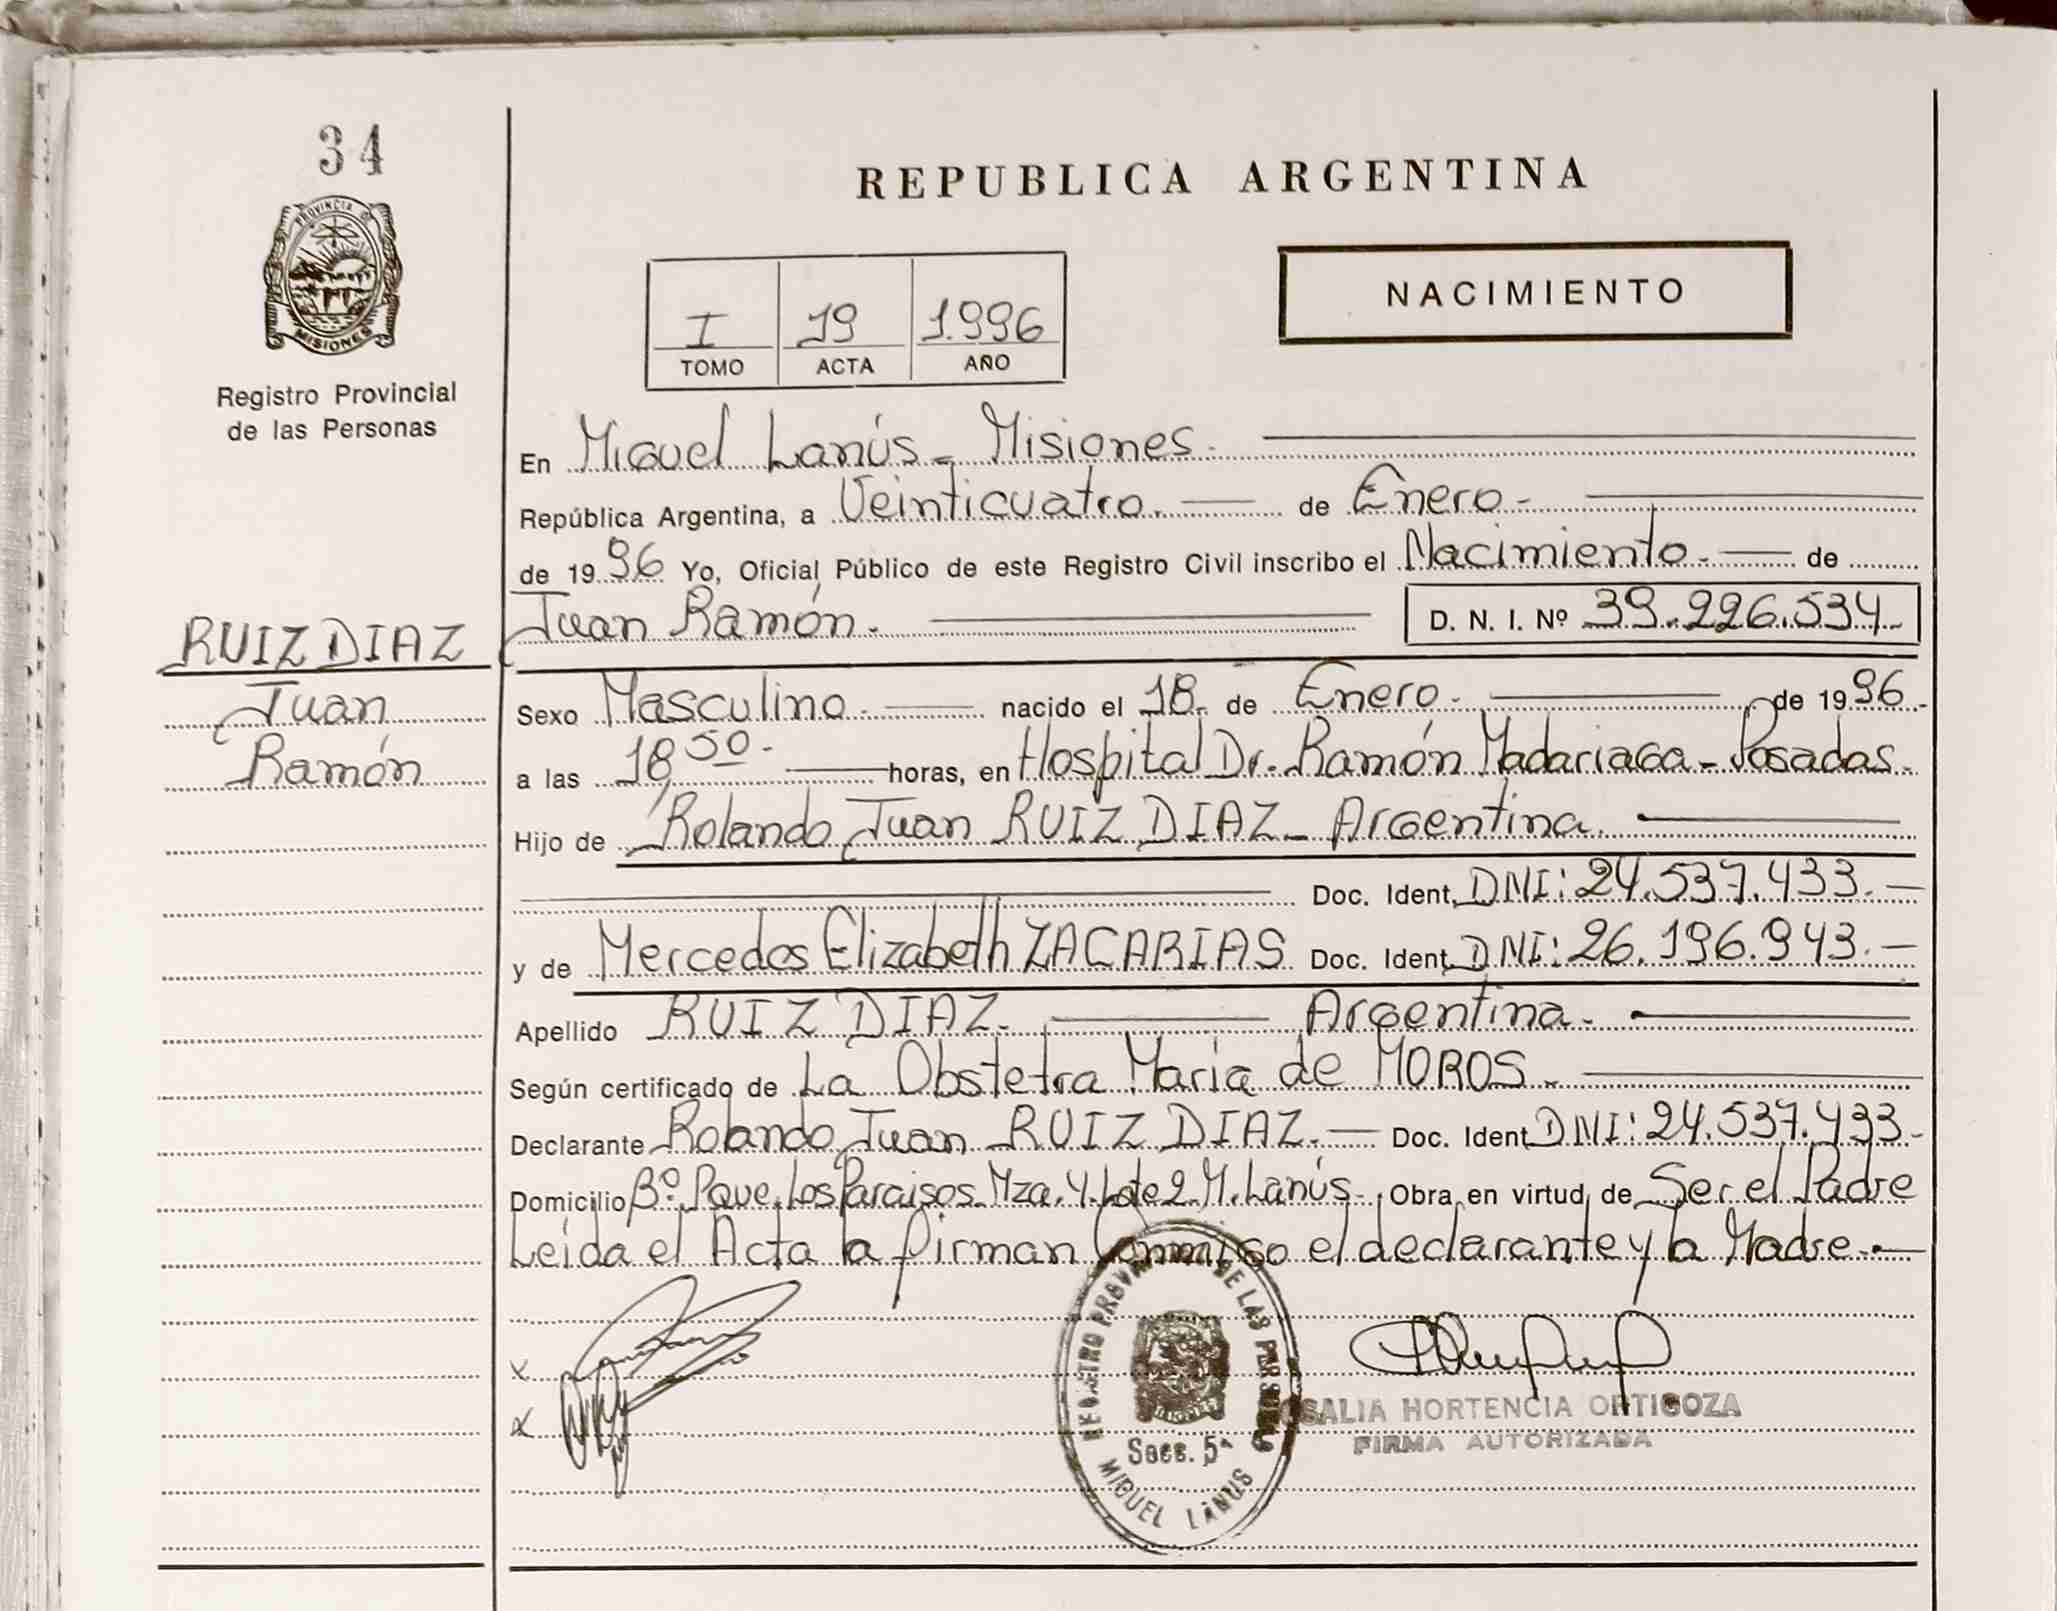 34
PROVINCIA DE
MISIONES
Registro Provincial
de las Personas
REPUBLICA ARGENTINA
I 19 1.996
TOMO ACTA AÑO
NACIMIENTO
En Miguel Lanús - Misiones.
República Argentina, a Veinticuatro. de Enero -
de 1996 Yo, Oficial Público de este Registro Civil inscribo el Nacimiento. de
Juan Ramón. D. N. I. Nº 39.226.534
RUIZ DIAZ
Juan
Ramón
Sexo Masculino. nacido el 18. de Enero. de 1996.
a las 18,50. horas, en Hospital Dr. Ramón Madariaga - Posadas.
Hijo de Rolando Juan RUIZ DIAZ - Argentina.
Doc. Ident. DNI: 24.537.433.
y de Mercedes Elizabeth ZACARIAS Doc. Ident. DNI: 26.196.943.
Apellido RUIZ DIAZ. Argentina.
Según certificado de La Obstetra Maria de MOROS.
Declarante Rolando Juan RUIZ DIAZ. Doc. Ident DNI: 24.537.433.
Domicilio Bº. Pque. Los Paraisos. Mza. 4. Lote 2. M. Lanús. Obra en virtud de Ser el Padre
Leída el Acta la firman Conmigo el declarante y la Madre.
x
x
REGISTRO PROVINCIAL DE LAS PERSONAS
Secc. 5ª
MIGUEL LANUS
ROSALIA HORTENCIA ORTIGOZA
FIRMA AUTORIZADA